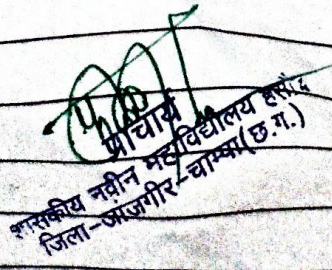 प्राचार्य
शासकीय नवीन महाविद्यालय हसौद
जिला-जांजगीर-चाम्पा (छ.ग.)